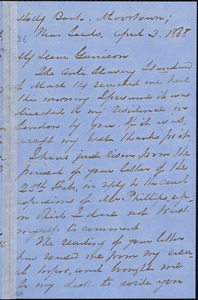 Holly Bank, Moortown,
Near Leeds, April 3. 1868
My Dear Garrison
The Anti Slavery Standard
of March 14 reached me here
this morning. I presume it was
directed to my residence in
London by you. If it was,
accept my best thanks for it.
I have just risen from the
perusal of your letter of the
25th Feb. in reply to the
of Mr Phillips, up-
on which I dare not trust
myself to comment.
The reading of your letter
has roused me from my usu-
al torpor, and brought me
to my desk to write you